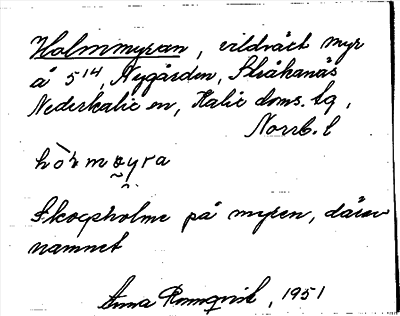 Holmmyran, vildväxt myr
å 5¹⁴, Nygården, Stråkanäs
Nederkalix sn, Kalix doms. tg,
Norrb. l
Skogsholme på myren, därav
namnet
Anna Rönnqvist, 1951